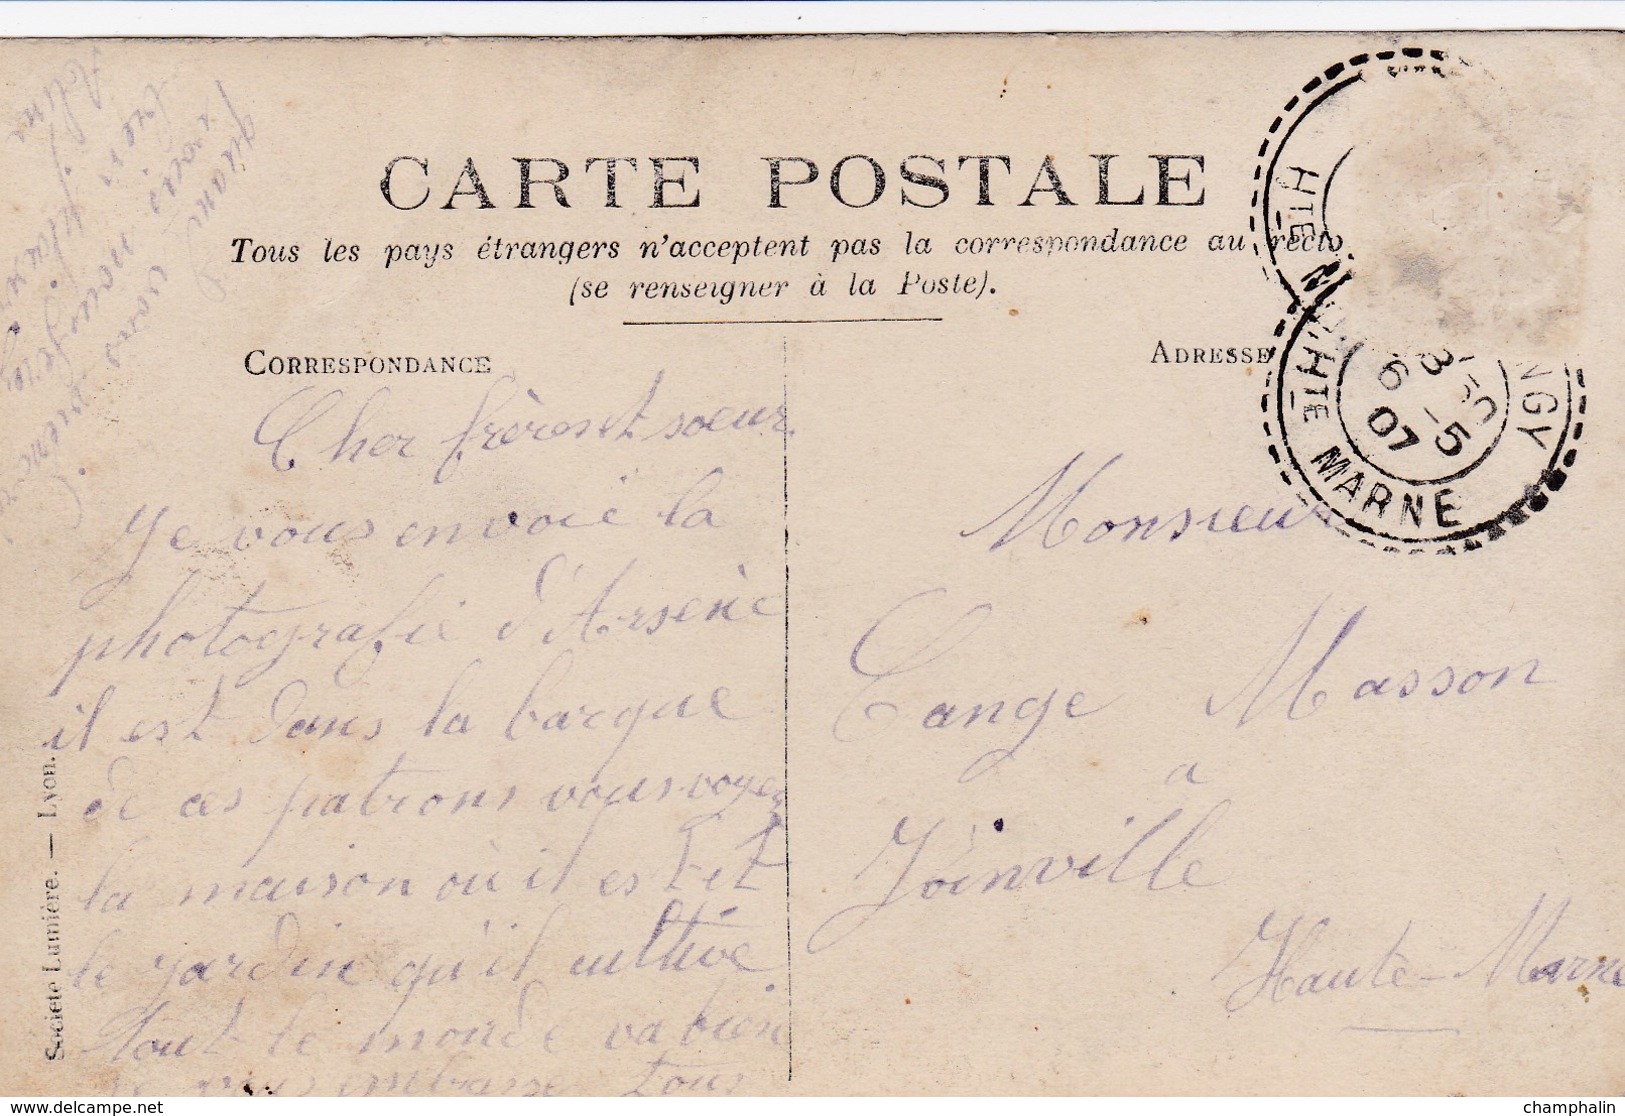 CARTE POSTALE
Tous les pays étrangers n'acceptent pas la correspondance au recto
(se renseigner à la Poste).
CORRESPONDANCE
ADRESSE
Cher frère et soeur
Je vous envoie la
photografie d'Arsène
il est dans la barque
de ces patrons vous voyez
la maison où il est et
le jardin qu'il cultive
tout le monde va bien
je vous embrasse tous
quand vous
viendrez
nous
Monsieur
Cange Masson
a
Joinville
Haute-Marne
HTE MARNE
NGY
HTE MARNE
6 -5
07
Société Lumière. — Lyon.
delcampe.net
champhalin